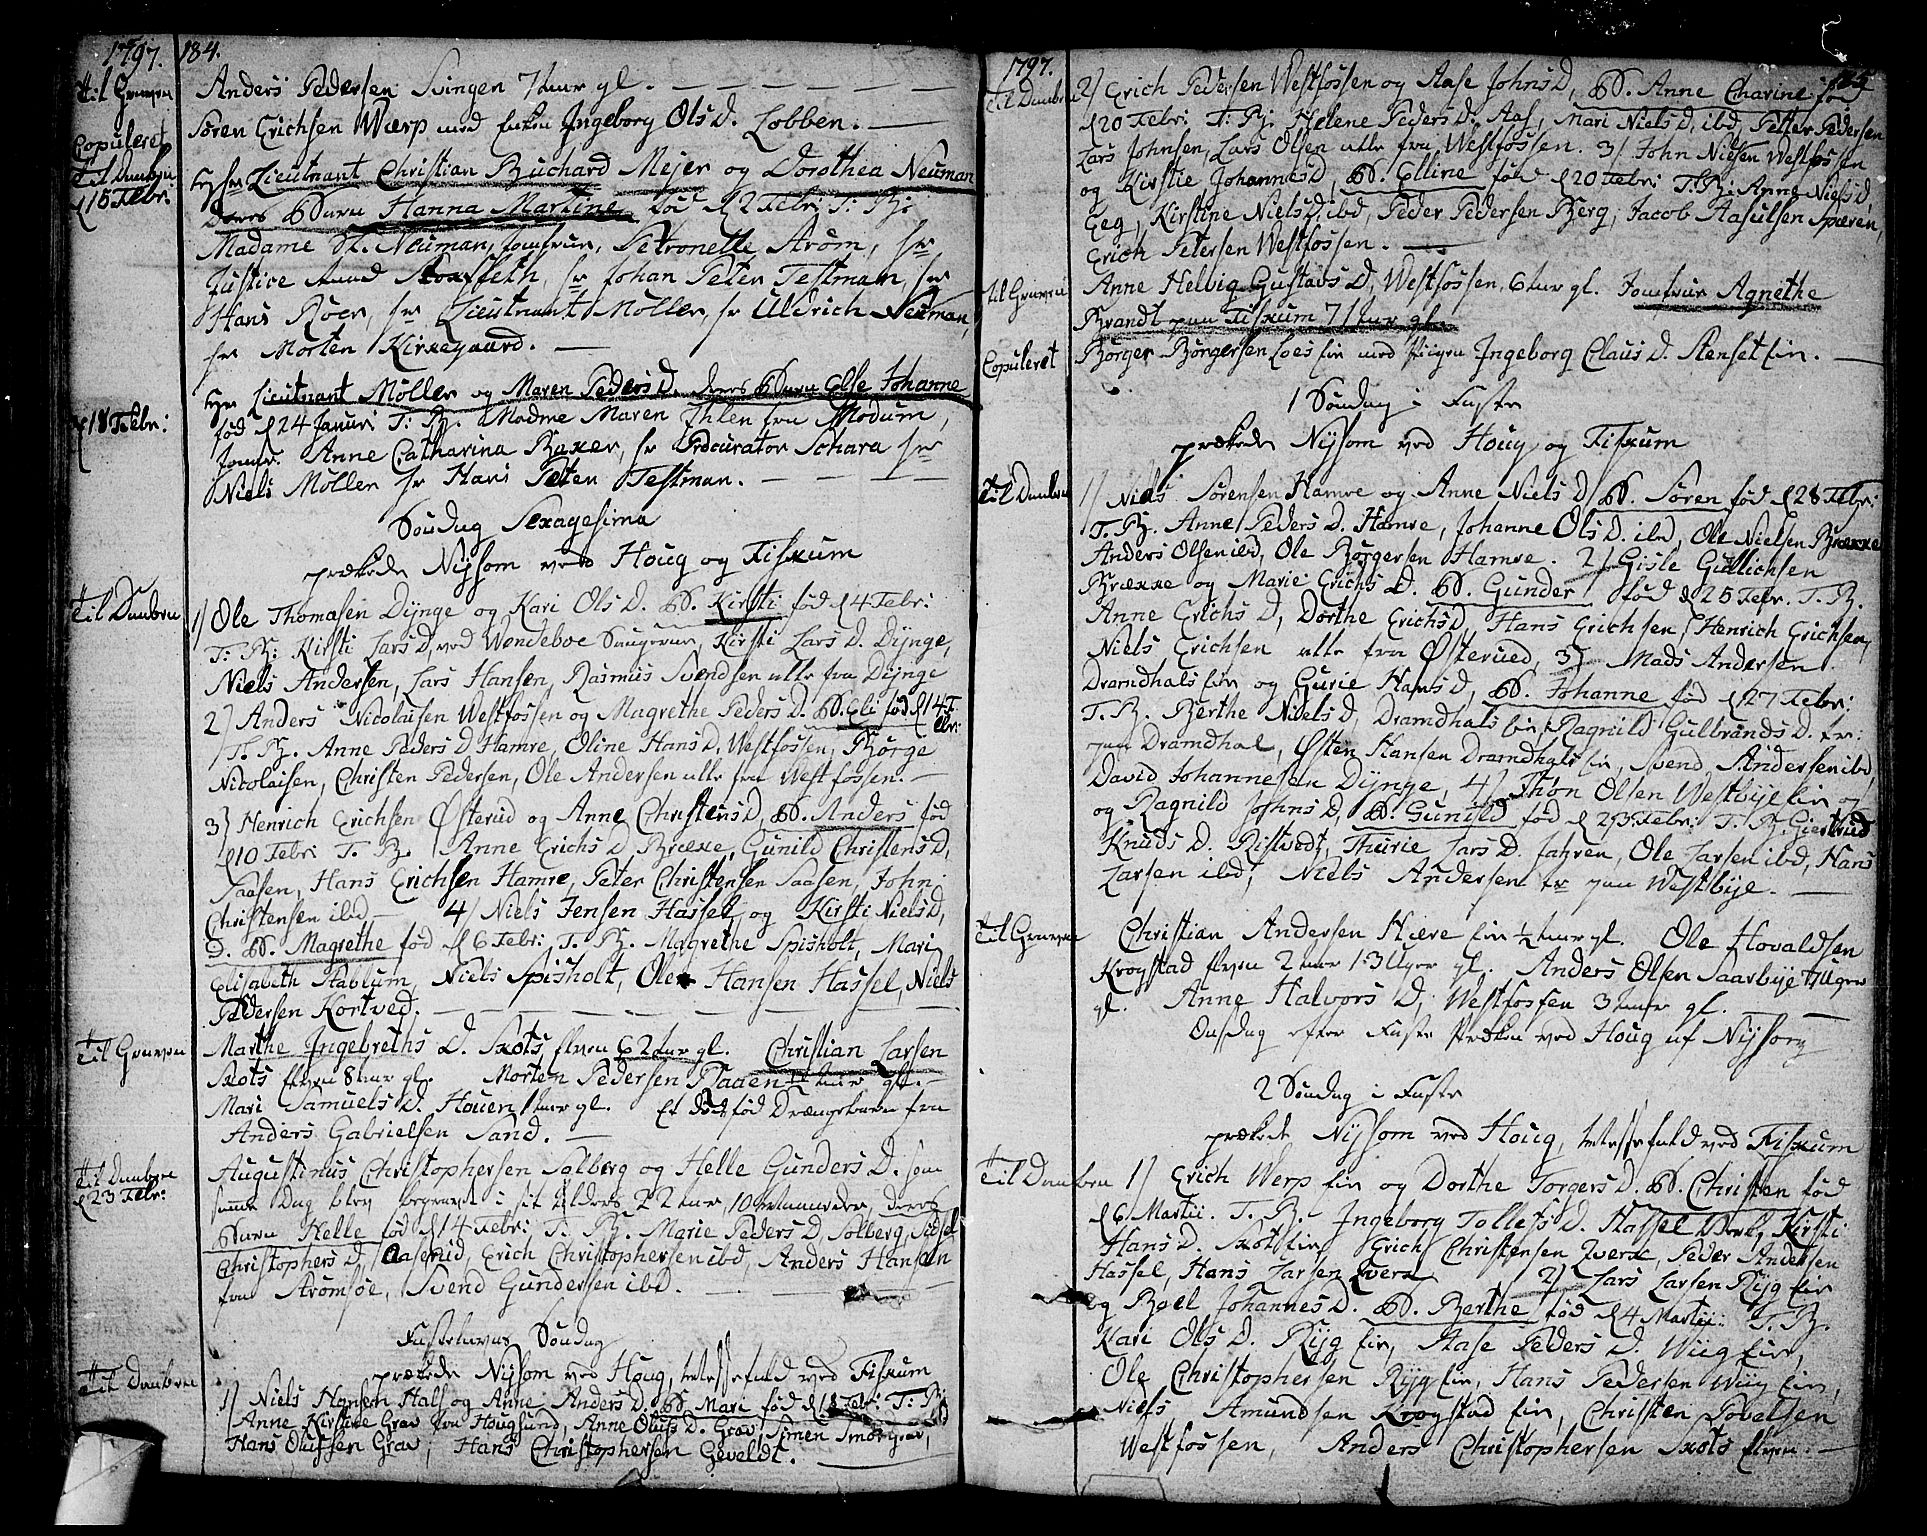 1797. 184.
Til Graven Anders Pedersen Svingen 7 aar gl.
Copuleret Sören Erichsen Werp med Enken Ingeborg Ols D. Lobben.
Til Daaben Hr Lieutnant Christian Buchard Mejer og Dorothea Neuman
d 15 Febr: deres B Barn Hanna Martine född d 2 Febr: T: B:
Madame Neuman, Jomfrue Petronelle Ström, Sr
Justice Raad Sr Johan Peter Testman, Sr
Hans Roer, Sr Lieutnant Möller, Sr Uldrich Neuman,
Sr Morten Kirkegaard.
Hr Lieutnant Möller og Maren Peders D. deres B Barn Else Johanne
d 18 Febr: fød d 24 Januri T: B. Madme Maren Ihlen fra Modum,
Jomfr. Anne Catharina Baker, Sr Procurator Schara Sr
Niels Möller Sr Hans Peter Testman.
Söndag Sexagesima
prækede Nyssom ved Houg og Fiskum
Til Daaben 1) Ole Thomasen Dynge og Kari Ols D. B. Kirsti fød d 4 Febr:
T: B: Kirsti Lars D, ved Wendeboe Saugerne, Kirsti Lars D. Dynge,
Niels Andersen, Lars Hansen, Rasmus Svendsen alle fra Dynge
2) Anders Nicolaisen Westfossen og Magrethe Peders D. B. Eli fød d 14 Febr:
T. B. Anne Peders D Hamre, Oline Hans D, Westfossen, Börge
Nicolaisen, Christen Pedersen, Ole Andersen alle fra Westfossen.
3) Henrich Erichsen Østerud og Anne Christens D, B. Anders fød
d 10 Febr: T. B. Anne Erichs D Brekke, Gunild Christens D,
Saasen, Hans Erichsen Hamre, Peter Christensen Saasen, John
Christensen ibd 4) Niels Jensen Hassel og Kirsti Niels D,
D. B. Magrethe fød d 6 Febr: T. B. Magrethe Spisholt, Mari
Elisabeth Stablum, Niels Spisholt, Ole Hansen Hassel, Niels
Pedersen Kortved.
Til Graven Marthe Ingebreths D. Skots Eyen 62 aar gl. Christian Larsen
Skots Eyen 8 aar gl. Morten Pedersen Haaen aar gl.
Mari Samuels D. Houen 1 aar gl. Et død fød Drengebarn fra
Anders Gabrielsen Sand.
Til Daaben Augustinus Christophersen Solberg og Helle Gunders D. som
d 23 Febr: samme Dag blev begravet i sit Alders 22 aar, 10 Maaneder, deres
B Barn Helle fød d 14 Febr: T. B. Marie Peders D, Solberg, Sidsel
Christophers D, Aaserud, Erich Christophersen ibd, Anders Hansen
fra Strömsöe, Svend Gundersen ibd.
Fastelavns Söndag
prækede Nyssom ved Houg, Messefald ved Fiskum
Til Daaben 1) Niels Hansen Hals og Anne Anders D. B. Mari fød d 18 Febr: T: B:
Anne Kirstine Grav fra Hougsund, Anne Oluss D. Grav, Simen Smörgrav,
Hans Olussen Grav, Hans Christophersen Geveldt.
1797. 185
Til Daaben 2) Erich Pedersen Westfossen og Aase Johns D, B. Anne Charine fød
d 20 Febr: T. B. Helene Peders D. Aas, Mari Niels D, ibd, Petter Pedersen
Lars Johnsen, Lars Olsen alle fra Westfossen. 3) John Nielsen Westfossen
og Kirstie Johannes D, B. Elline fød d 20 Febr: T. B. Anne Niels D,
Eeg, Kirstine Niels D, ibd, Peder Pedersen Berg, Jacob Aasulsen Speren,
Erich Petersen Westfossen.
Til Graven Anne Helvig Gustavs D, Westfossen, 6 aar gl. Jomfrue Agnethe
Brandt paa Fiskum 71 aar gl.
Copuleret Börger Börgersen Loes Eier med Pigen Ingeborg Claus D. Stenset Eier.
1 Söndag i Faste
prækede Nyssom ved Houg og Fiskum
Til Daaben 1) Niels Sörensen Hamre og Anne Niels D, B. Sören fød d 28 Febr:
T. B. Anne Peders D. Hamre, Johanne Ols D. ibd, Ole Nielsen Brekke
Anders Olsen ibd, Ole Börgersen Hamre. 2) Gisle Gullichsen
Brekke og Marie Erichs D. B. Gunder fød d 25 Febr. T. B.
Anne Erichs D, Dorthe Erichs D, Hans Erichsen, Henrich Erichsen,
Niels Erichsen alle fra Østerud, 3) Mads Andersen
Dramdhals Eier og Gurie Hans D, B. Johanne fød d 27 Febr:
T. B. Berthe Niels D, Dramdhals Eier, Ragnild Gulbrands D. Er:
paa Dramdhal, Østen Hansen Dramdhals Eier, Svend Andersen ibd,
David Johannesen Dynge, 4) Thon Olsen Westbye Eier og
og Ragnild Johns D, B. Gunild fød d 23 Febr: T. B. Giertrud
Knuds D. Ristvedt, Thurie Lars D. Jahren, Ole Larsen ibd, Hans
Larsen ibd, Niels Andersen Er paa Westbye.
Til Graven Christian Andersen Kiere Eier ½ aar gl. Ole Hovaldsen
Krogstad Eyen 2 aar 13 Uger gl. Anders Olsen Saarbye 7 Uger
gl. Anne Halvors D, Westfossen 3 aar gl.
Onsdag efter Faste Præken ved Houg af Nyssom
2 Söndag i Faste
prækede Nyssom ved Houg, Messefald ved Fiskum
Til Daaben 1) Erich Werp Eier og Dorthe Torgers D. B. Christen fød
d 6 Martii. T. B. Ingeborg Tollefs D. Hassel Verk, Kirsti
Hans D. Skots Eier, Erich Christensen Qverk, Peder Andersen
Hassel, Hans Larsen Qverk 2) Lars Larsen Ryg Eier
og Boel Johannes D. B. Berthe fød d 4 Martii: T. B.
Kari Ols D. Ryg Eier, Aase Peders D. Wiig Eier,
Ole Christophersen Ryg Eier, Hans Pedersen Wiig Eier,
Niels Amundsen Krogstad Eier, Christen Povelsen
Westfossen, Anders Christophersen Skots Eyen.